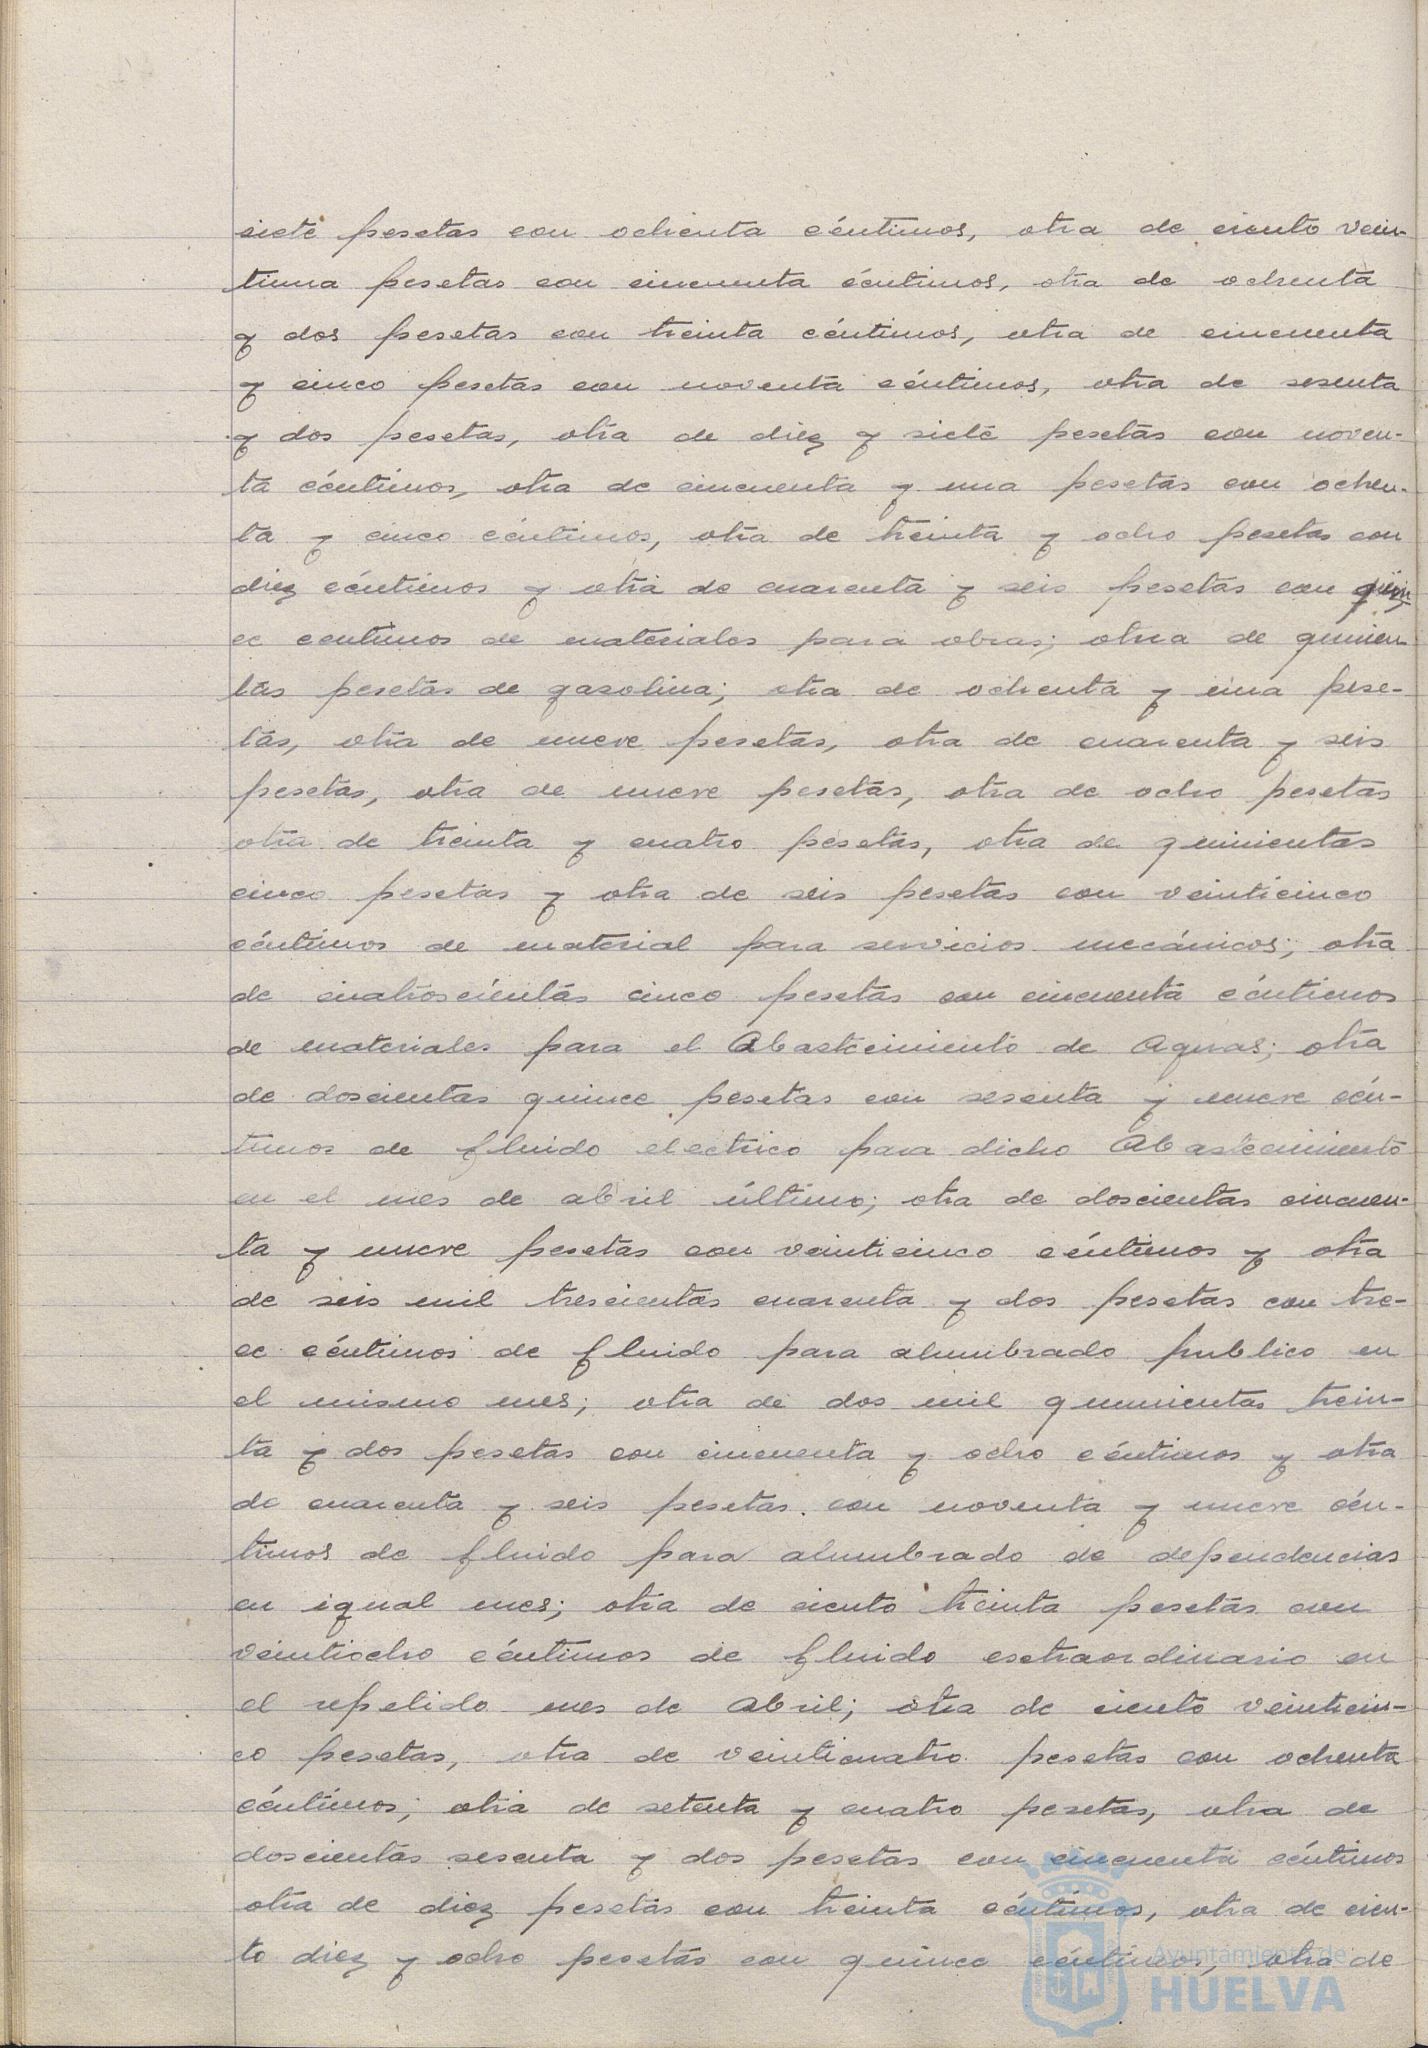 siete pesetas con ochenta céntimos, otra de ciento vein-
tiuna pesetas con cincuenta céntimos, otra de ochenta
y dos pesetas con treinta céntimos, otra de cincuenta
y cinco pesetas con noventa céntimos, otra de sesenta
y dos pesetas, otra de diez y siete pesetas con noven-
ta céntimos, otra de cincuenta y una pesetas con ochen-
ta y cinco céntimos, otra de treinta y ocho pesetas con
diez céntimos y otra de cuarenta y seis pesetas con quin
ce centimos de materiales para obras; otra de quinien
tas pesetas de gasolina; otra de ochenta y una pese-
tas, otra de nueve pesetas, otra de cuarenta y seis
pesetas, otra de nueve pesetas, otra de ocho pesetas
otra de treinta y cuatro pesetas, otra de quinientas
cinco pesetas y otra de seis pesetas con veinticinco
céntimos de material para servicios mecánicos; otra
de cuatroscientas cinco pesetas con cincuenta céntimos
de materiales para el Abastecimiento de Aguas; otra
de doscientas quince pesetas con sesenta y nueve cén-
timos de fluido electrico para dicho Abastecimiento
en el mes de abril último; otra de doscientas cincuen-
ta y nueve pesetas con veinticinco céntimos y otra
de seis mil trescientas cuarenta y dos pesetas con tre-
ce céntimos de fluido para alumbrado publico en
el mismo mes; otra de dos mil quinientas trein-
ta y dos pesetas con cincuenta y ocho céntimos y otra
de cuarenta y seis pesetas con noventa y nueve cén-
timos de fluido para alumbrado de dependencias
en igual mes; otra de ciento treinta pesetas con
veintiocho céntimos de fluido estraordinario en
el repetido mes de Abril; otra de ciento veinticin-
co pesetas, otra de veinticuatro pesetas con ochenta
céntimos; otra de setenta y cuatro pesetas, otra de
doscientas sesenta y dos pesetas con cincuenta céntimos
otra de diez pesetas con treinta céntimos, otra de cien-
to diez y ocho pesetas con quince céntimos, otra de
Ayuntamiento de
HUELVA